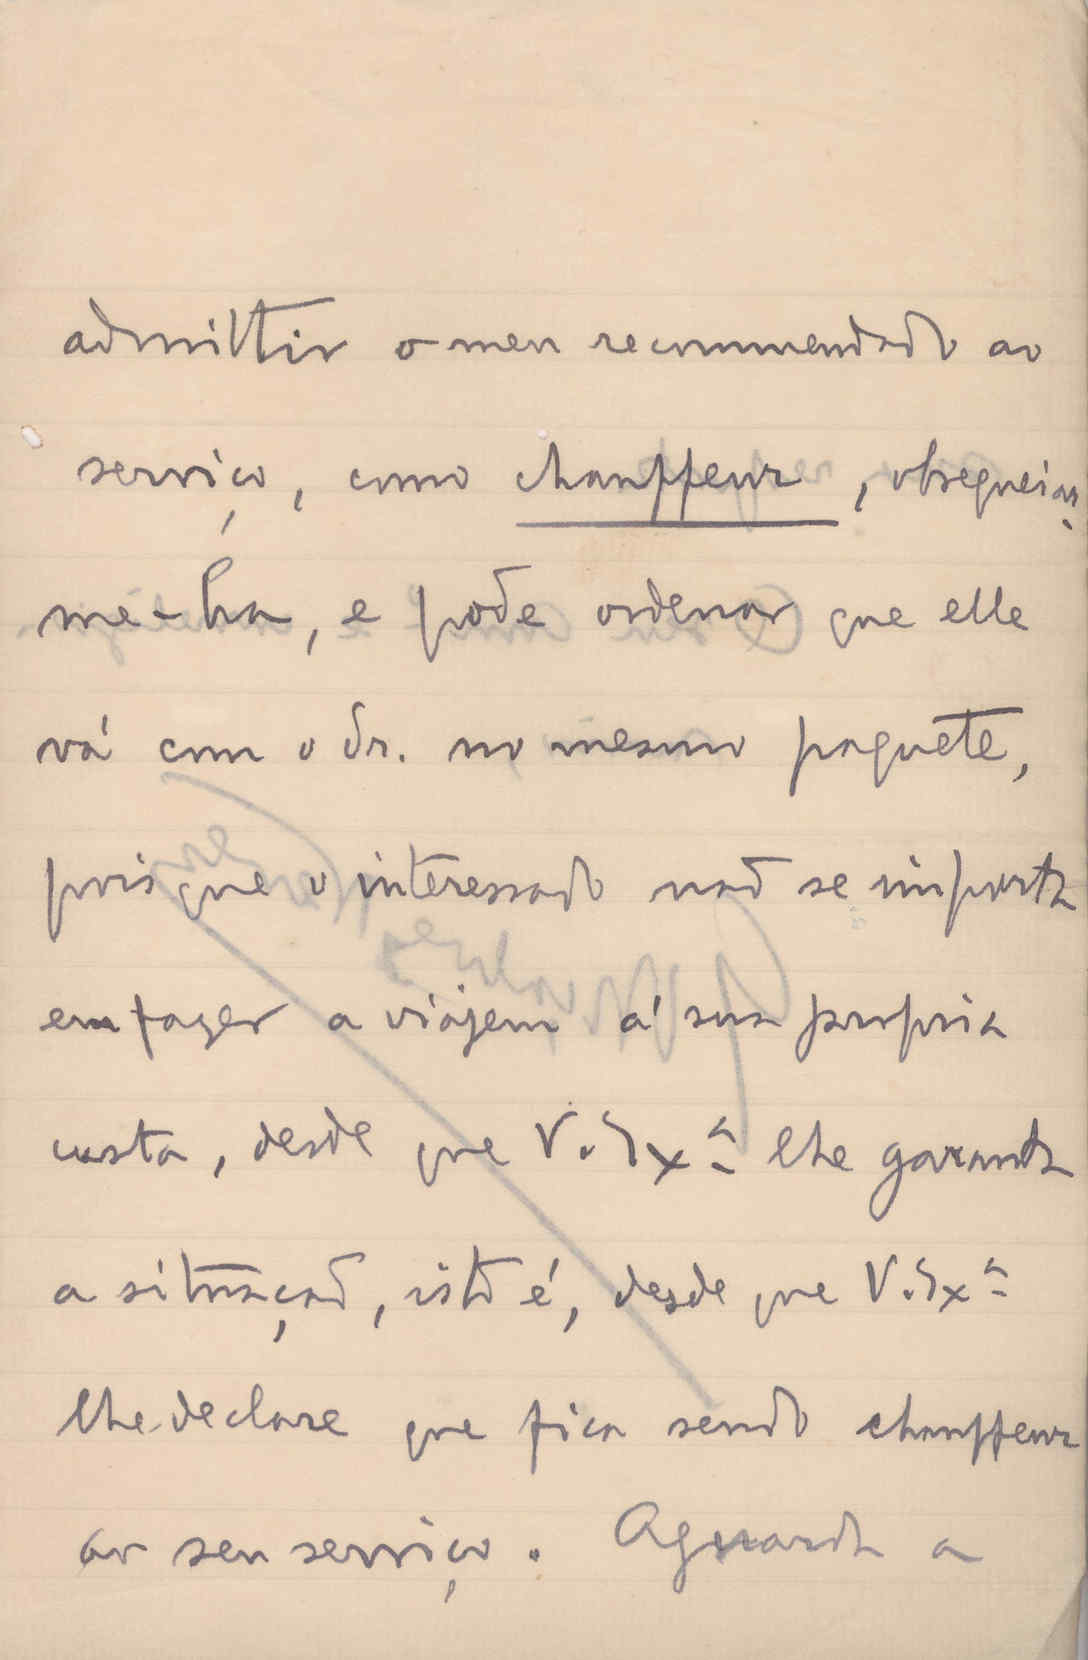 admittir o meu recommendado ao
serviço, como chauffeur, obsequiar
me-ha, e pode ordenar que elle
vá com o dr. no mesmo paquete,
pois que o interessado não se importa
em fazer a viajem á sua propria
custa, desde que V. Exª lhe garanta
a situação, isto é, desde que V. Exª
lhe declare que fica sendo chauffeur
ao seu serviço. Aguarda a